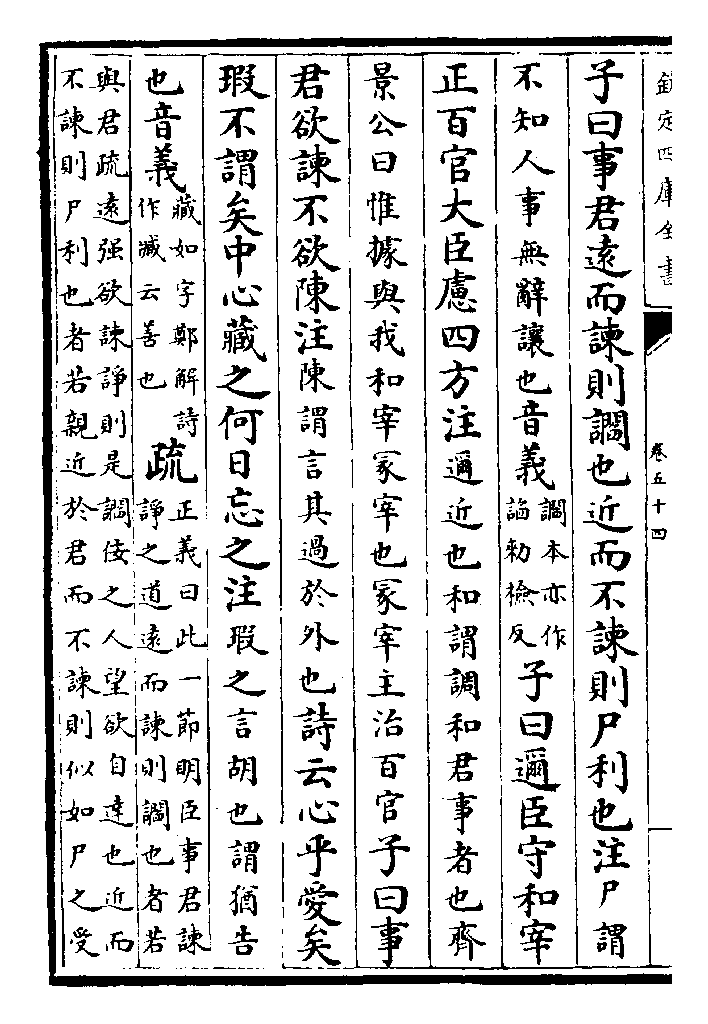 欽定四庫全書
卷五十四
子曰事君遠而諫則讇也近而不諫則尸利也注尸謂
不知人事無辭讓也音義讇本亦作
諂勅檢反子曰邇臣守和宰
正百官大臣慮四方注邇近也和謂調和君事者也齊
景公曰惟據與我和宰冢宰也冢宰主治百官子曰事
君欲諫不欲陳注陳謂言其過於外也詩云心乎愛矣
瑕不謂矣中心藏之何日忘之注瑕之言胡也謂猶告
也音義藏如字鄭解詩
作臧云善也疏正義曰此一節明臣事君諫
諍之道遠而諫則讇也者若
與君疏遠强欲諫諍則是讇佞之人望欲自達也近而
不諫則尸利也者若親近於君而不諫則似如尸之受